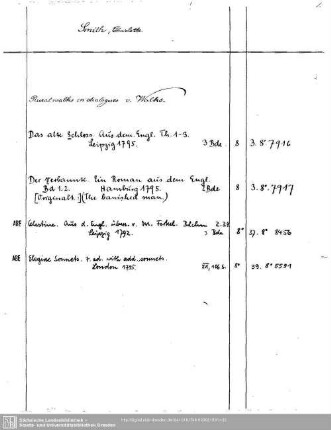 Smith, Charlotte
Rural walks in dialogues v. Walks.
Das alte Schloss. Aus dem Engl. Th. 1-3.
Leipzig 1795. 3 Bde 8 3. 8° 7916
Der Verbannte. Ein Roman aus dem Engl.
Bd 1.2. Hamburg 1795. 2 Bde 8 3. 8°. 7917
(The banished man.)
Celestine. Aus d. Engl. übers. v.
Leipzig 1792. 3 Bde 8° 37. 8° 8456
Elegiac Sonnets. 7. ed. with add. sonnets.
London 1795. 8° 39. 8° 5591
Sächsische Landesbibliothek -
Staats- und Universitätsbibliothek Dresden